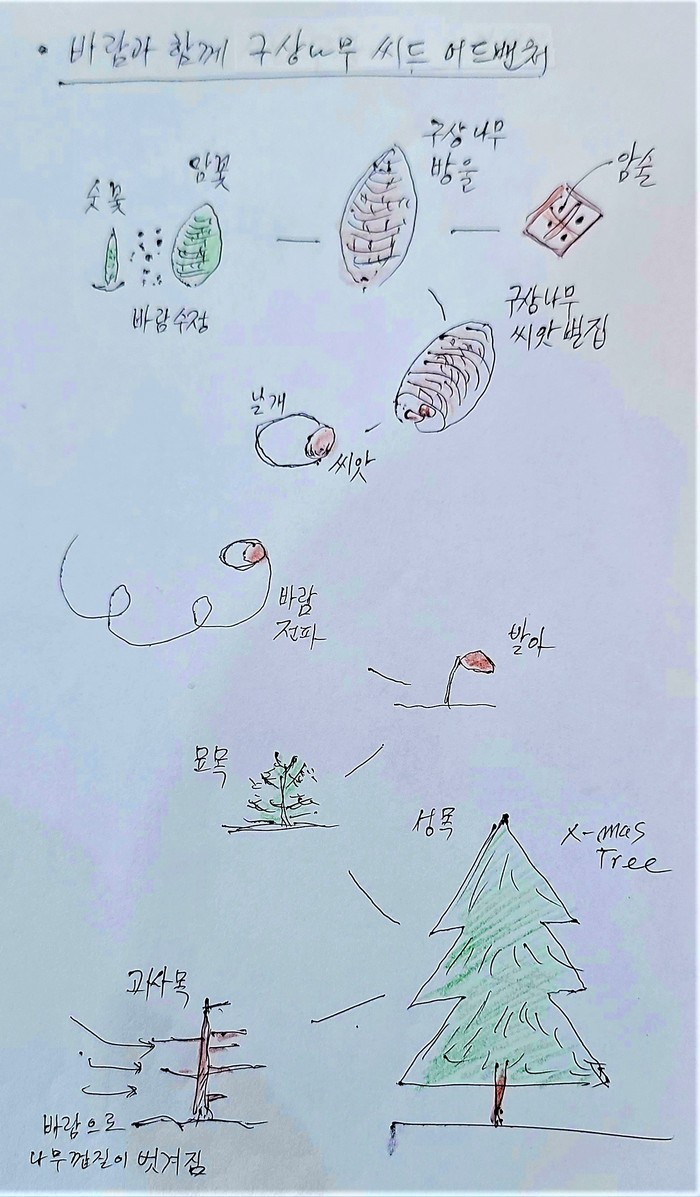 • 바람과 함께 구상나무 씨드 어드밴쳐
숫꽃
암꽃
바람수정
구상나무
방울
암술
구상나무
씨앗 벌집
날개
씨앗
바람
전파
발아
묘목
성목
X-mas
Tree
고사목
바람으로
나무껍질이 벗겨짐